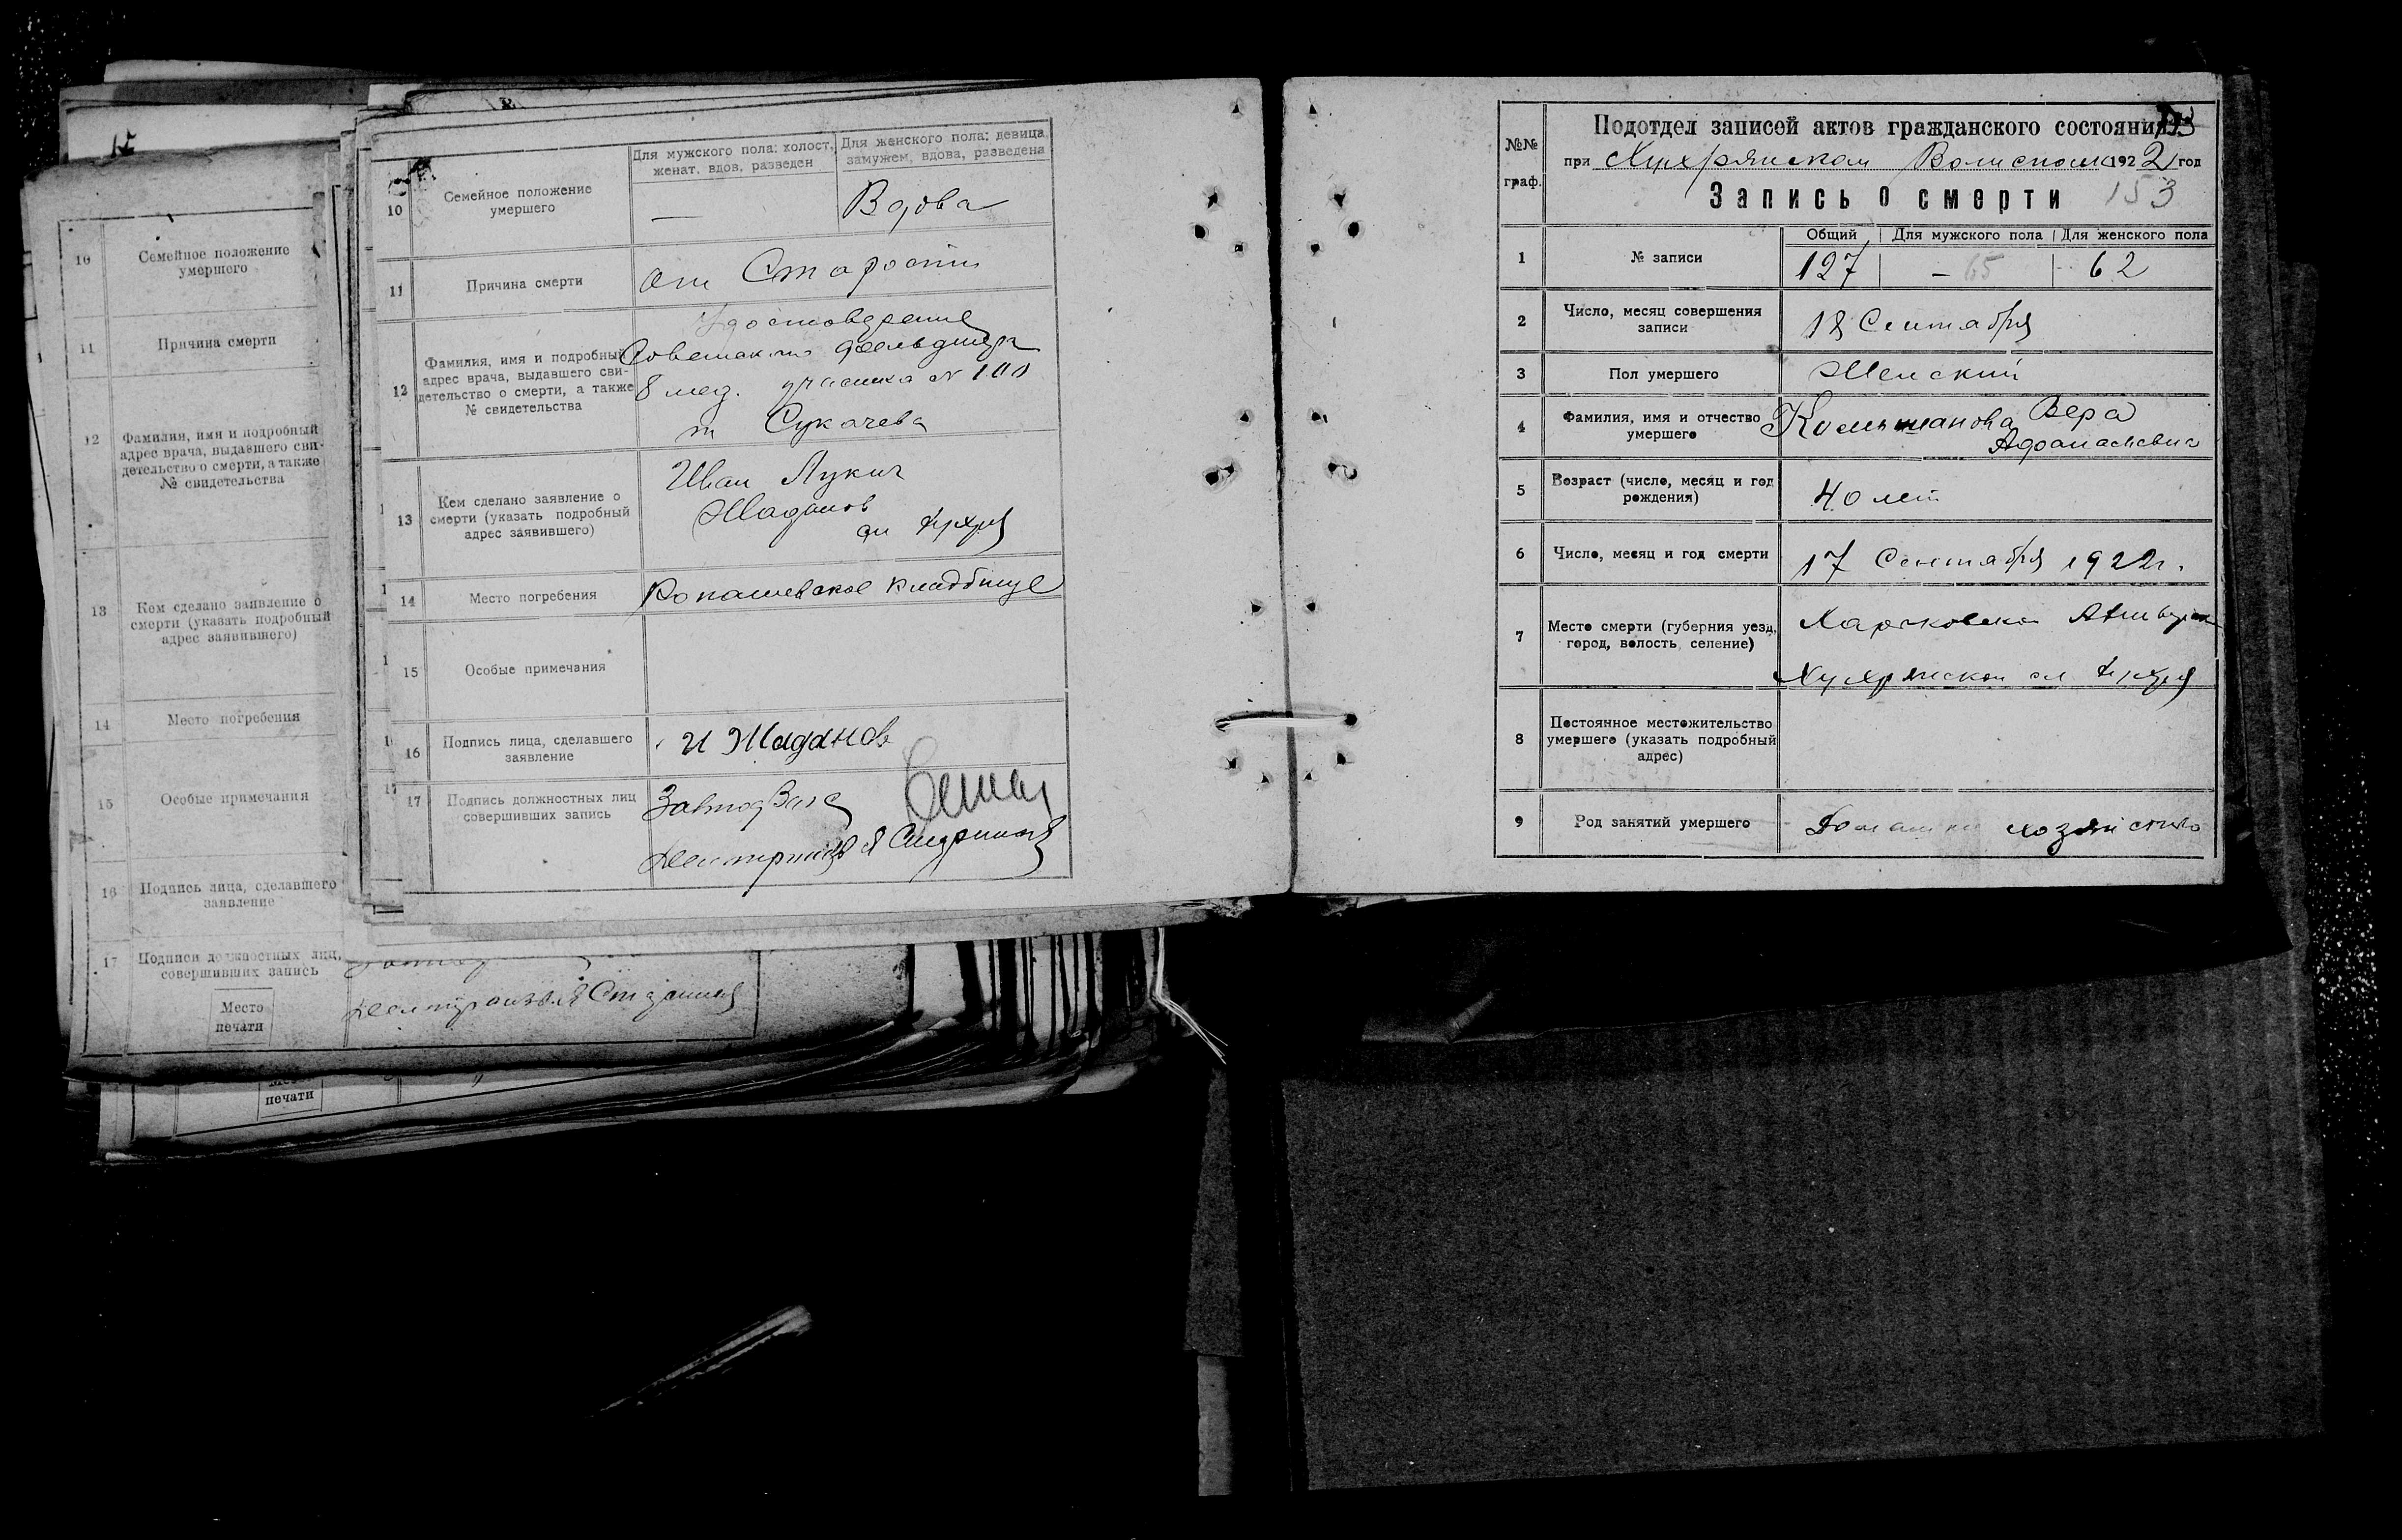 10
Семейное положение
умершего
11
Причина смерти
12
Фамилия, имя и подробный
адрес врача, выдавшего сви-
детельство о смерти, а также
№ свидетельства
13
Кем сделано заявление о
смерти (указать подробный
адрес заявившего)
14
Место погребения
15
Особые примечания
16
Подпись лица, сделавшего
заявление
17
Подписи должностных лиц,
совершивших запись
Место
печати
печати
10
Семейное положение
умершего
Для мужского пола: холост,
женат, вдов, разведен
Для женского пола: девица,
замужем, вдова, разведена
—
Вдова
11
Причина смерти
от Старости
12
Фамилия, имя и подробный
адрес врача, выдавшего сви-
детельство о смерти, а также
№ свидетельства
Удостоверение
фельдшера
8 мед. участка № 100
т Сукачева
13
Кем сделано заявление о
смерти (указать подробный
адрес заявившего)
Иван Лукич
Жаданов
14
Место погребения
кладбище
15
Особые примечания
16
Подпись лица, сделавшего
заявление
И Жаданов
17
Подпись должностных лиц
совершивших запись
№№
граф.
Подотдел записей актов гражданского состояния
при Хухрянском Волисполк 1922 год
Запись о смерти 153
1
№ записи
Общий
Для мужского пола
Для женского пола
127
– 65
62
2
Число, месяц совершения
записи
18 Сентября
3
Пол умершего
Женский
4
Фамилия, имя и отчество
умершего
Вера
5
Возраст (число, месяц и год
рождения)
40 лет
6
Число, месяц и год смерти
17 Сентября 1922г.
7
Место смерти (губерния уезд,
город, волость, селение)
Харьковской
Хухрянской сл
8
Постоянное местожительство
умершего (указать подробный
адрес)
9
Род занятий умершего
хозяйство